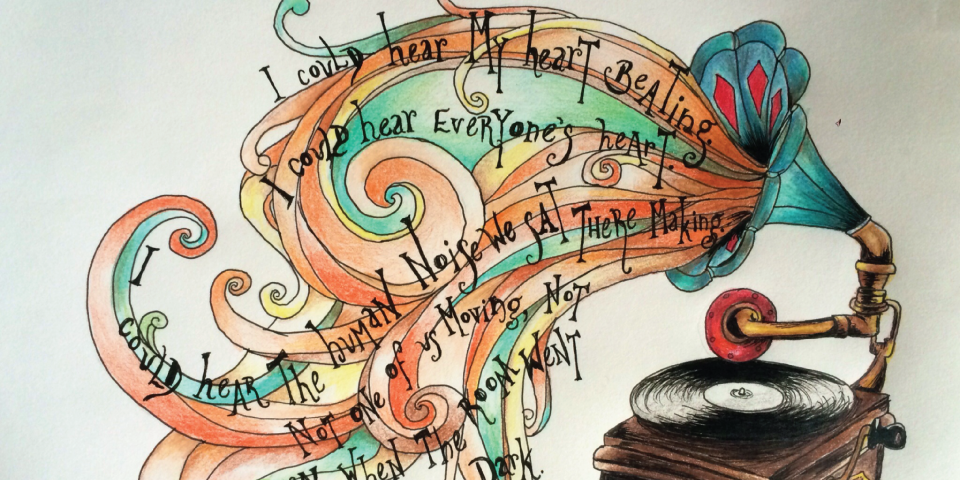 I could hear My heart Beating.
I could hear Everyone's heart.
I could hear The human Noise We sat There Making,
Not one of us Moving, Not
When The Room Went
Dark.